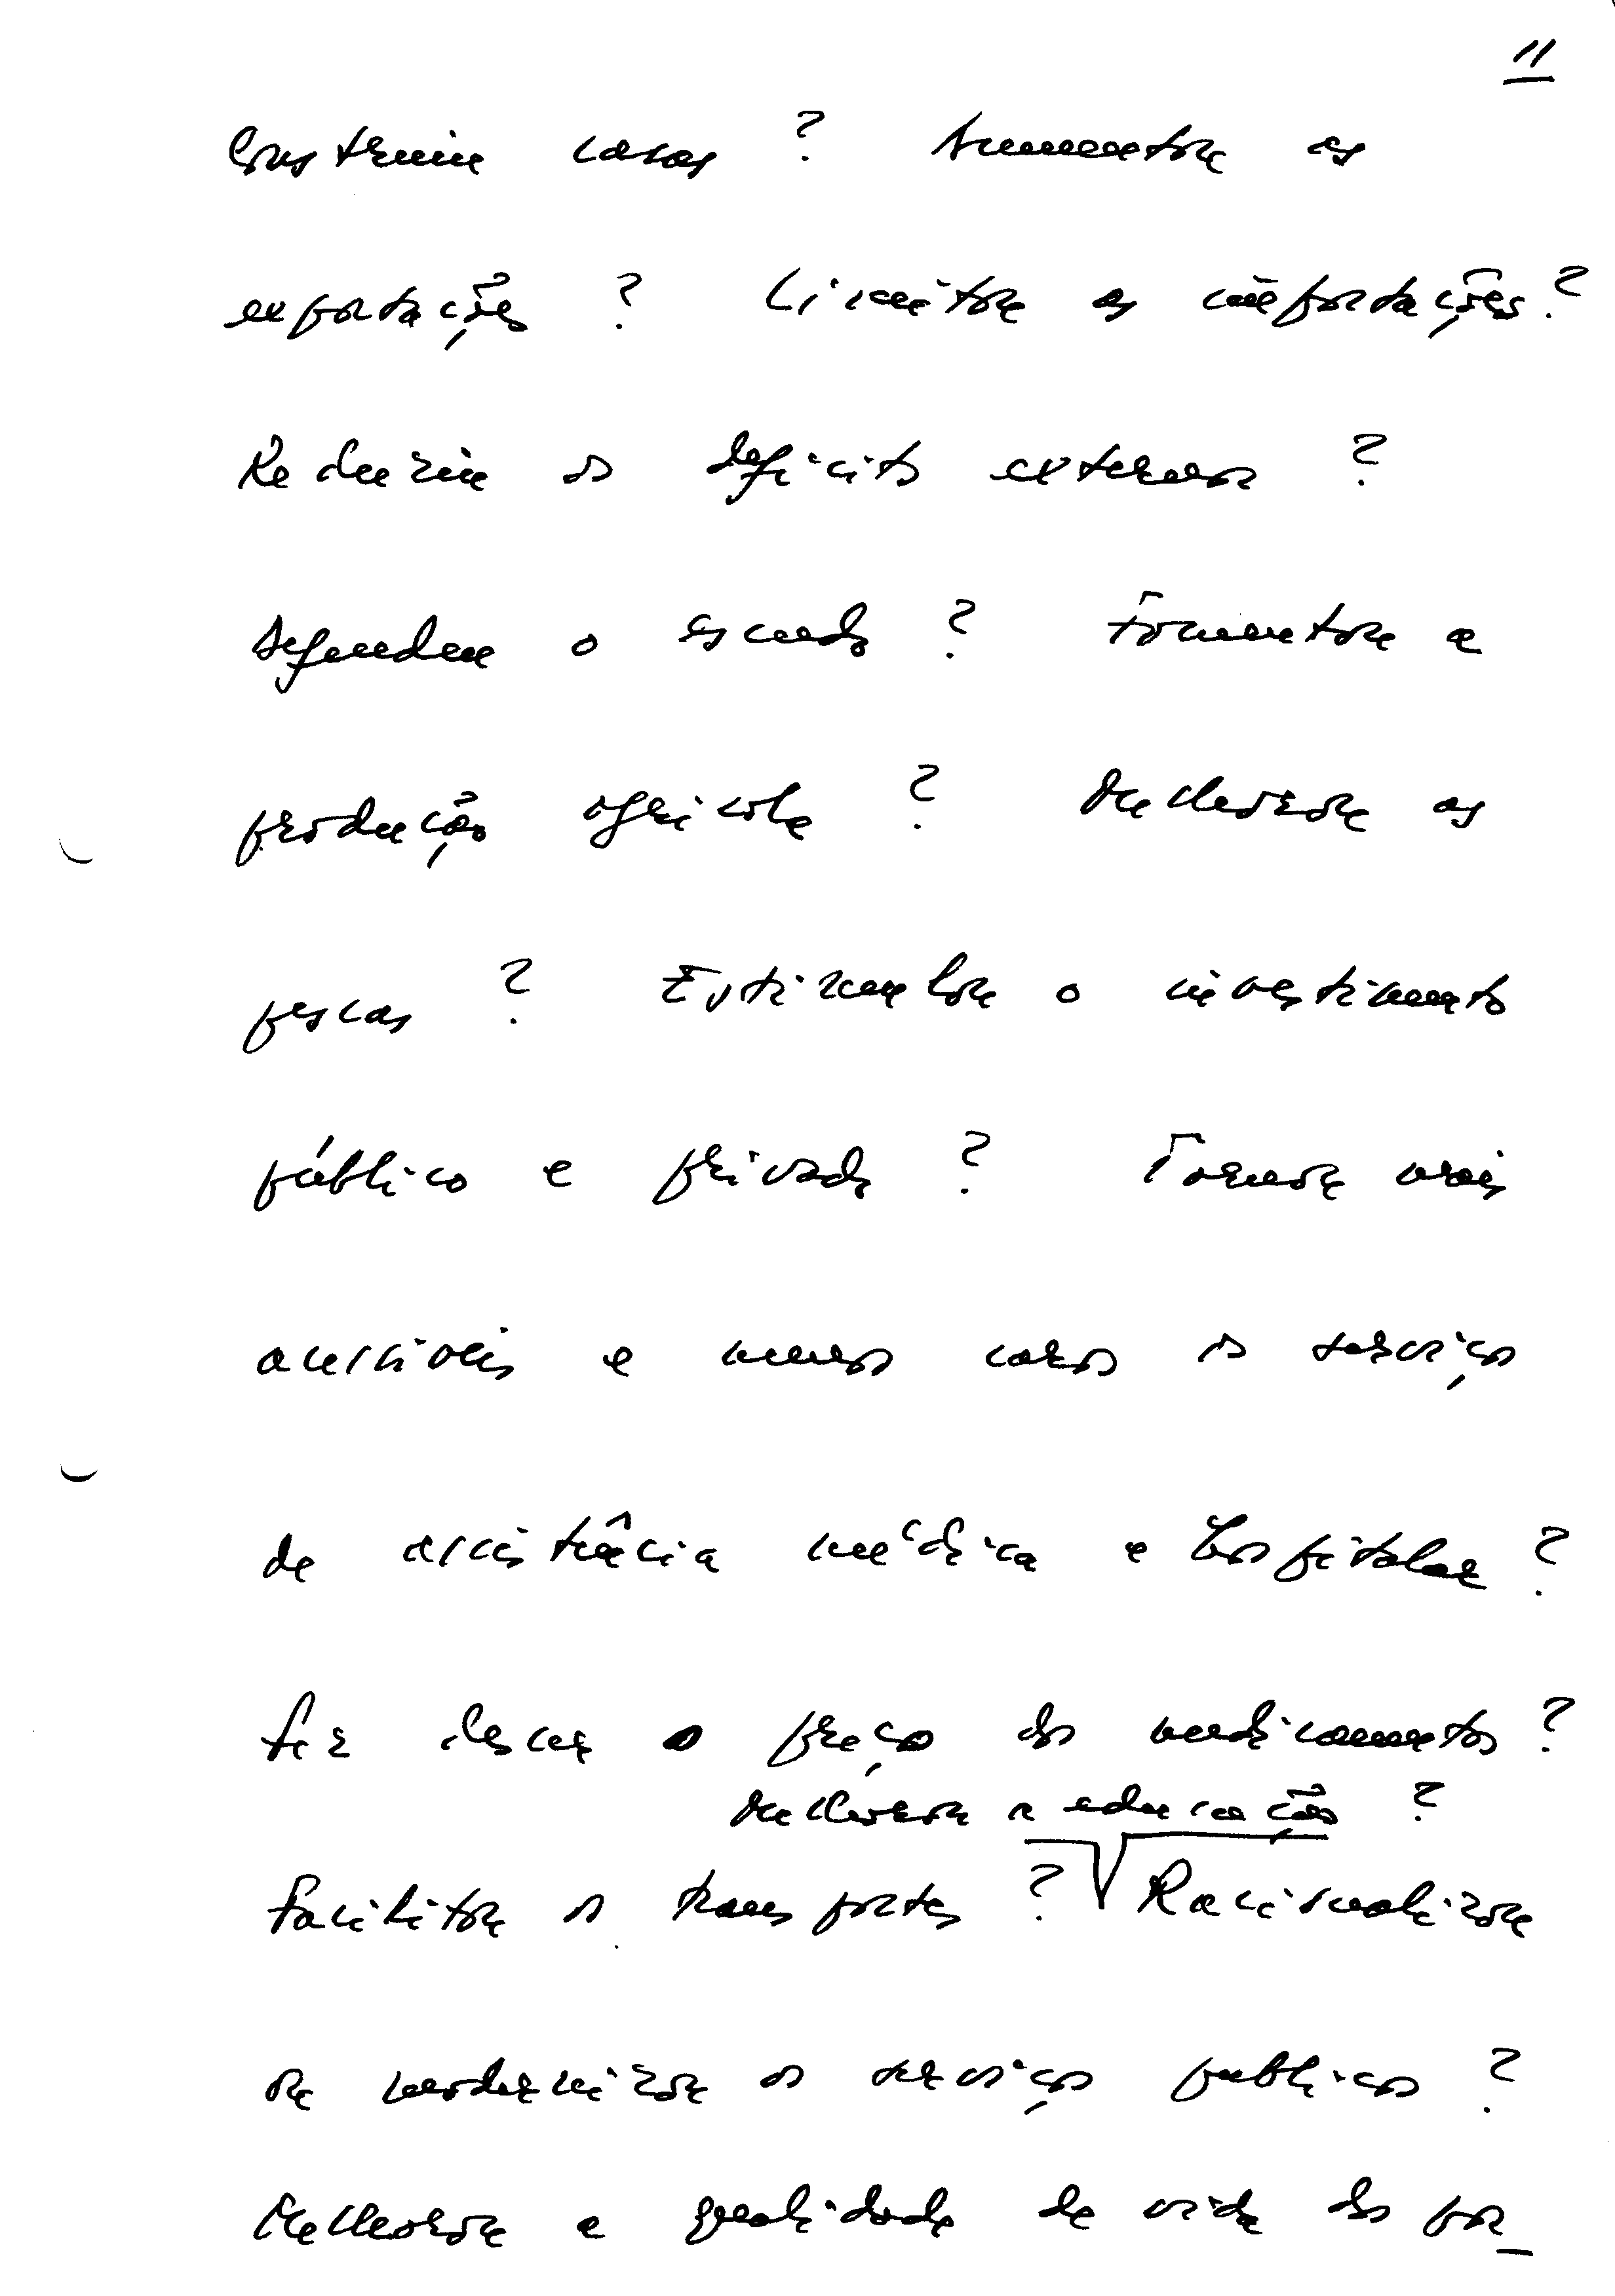 11
Construir casas ? Aumentar as
exportações ? Limitar as importações ?
Reduzir os deficits externos ?
Defender o escudo ? Fomentar a
produção agrícola ? Melhorar as
pescas ? Estimular o investimento
público e privado ? Tornar mais
acessíveis e menos caros os serviços
de assistência médica e hospitalar ?
Fazer descer o preço dos medicamentos ?
Melhorar a educação ?
Facilitar os transportes ? Racionalizar
ou modernizar os serviços públicos ?
Melhorar a qualidade de vida dos por_